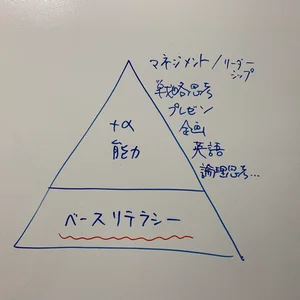 マネジメント/リーダー
シップ
戦略思考
プレゼン
企画
英語
論理思考…
+α
能力
ベースリテラシー